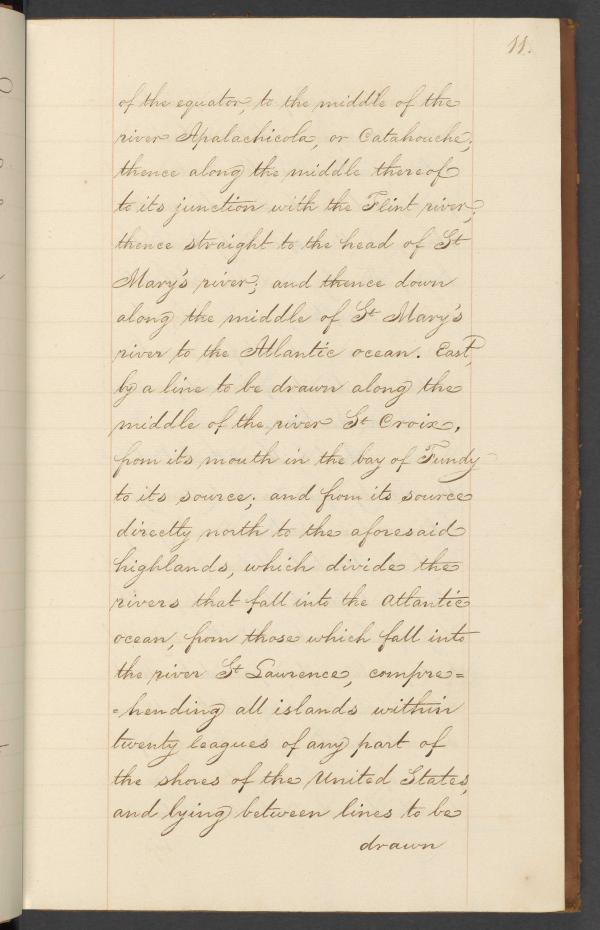 11.
of the equator, to the middle of the
river Apalachicola, or Catahouche;
thence along the middle thereof
to its junction with the Flint river;
thence straight to the head of St
Mary's river; and thence down
along the middle of St Mary's
river to the Atlantic ocean. East,
by a line to be drawn along the
middle of the river St Croix,
from its mouth in the bay of Fundy
to its source; and from its source
directly north to the aforesaid
highlands, which divide the
rivers that fall into the Atlantic
ocean, from those which fall into
the river St Laurence, compre=
=hending all islands within
twenty leagues of any part of
the shores of the United States,
and lying between lines to be
drawn